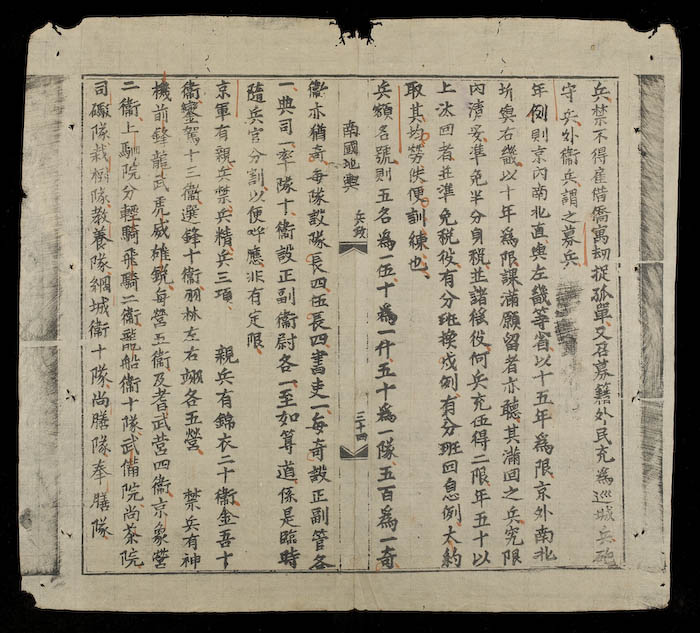 兵禁不得雇借僑寓刼捉孤單又召募籍外民充為巡城兵砲
守兵外衛兵謂之募兵
年例則京內南北直與左畿等省以十五年為限京外南北
圻與右畿以十年為限課滿願留者亦聽其滿回之兵究限
內清妥準免半分身税並諸徭役何兵充伍得二限年五十以
上汰回者並準免税役有分班換戍例有分班回息例太約
取其均勞佚便訓練也
兵額名號則五名為一伍十為一什五十為一隊五百為一奇
南國地輿 兵政 三十四
衛亦猶奇每隊設隊長四伍長四書吏一每奇設正副管各
一典司一率隊十衛設正副衛尉各一至如等道係是臨時
隨兵官分割以便呼應非有定限
京軍有親兵禁兵精兵三項 親兵有錦衣二十衛金吾十
衛鑾駕十三衛選鋒十衛羽林左右翊各五營 禁兵有神
機前鋒龍武虎威雄銳每營五衛及耆武營四衛京象營
二衛上駟院分輕騎飛騎二衛龍船衛十隊武備院尚茶院
司礮隊栽樹隊教養隊綱城衛十隊尚膳隊奉膳隊